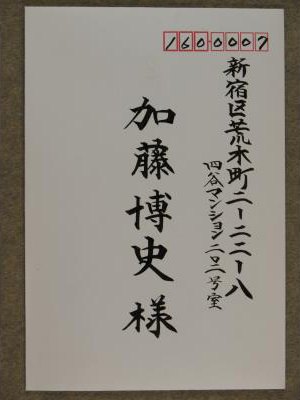 1600007
新宿区荒木町二ー二二ー八
四谷マンション二〇二号室
加藤博史様